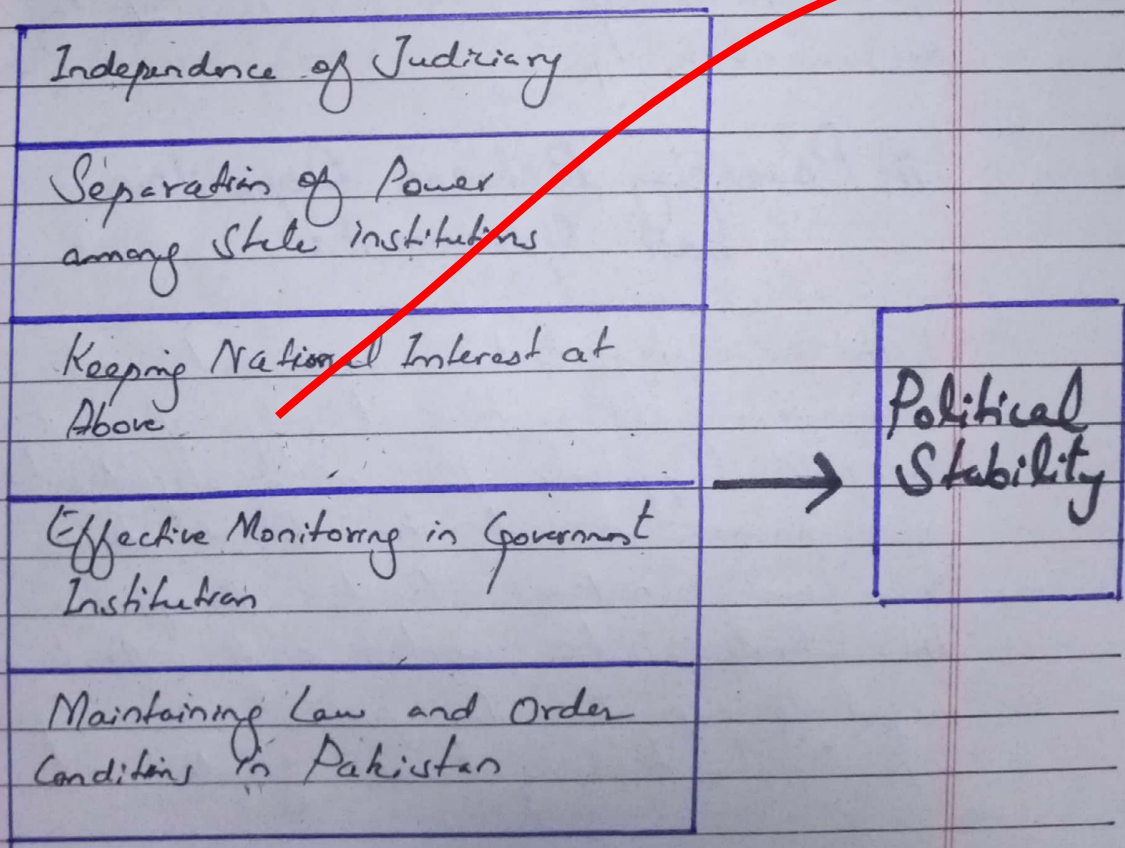 Independence of Judiciary
Separation of Power
among State institutions
Keeping National Interest at
Above.
Effective Monitoring in Government
Institution
Maintaining Law and Order
Conditions in Pakistan
Political
Stability